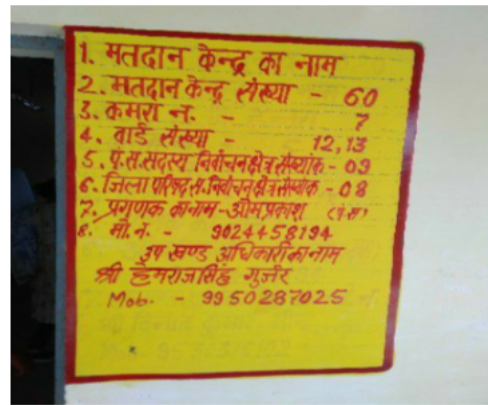 1. मतदान केन्द्र का नाम
2. मतदान केन्द्र संख्या - 60
3. कमरा न. - 7
4. वार्ड संख्या - 12,13
5. पं.स.सदस्य निर्वाचन क्षेत्र संख्यांक - 09
6. जिला परिषद स.निर्वाचन क्षेत्र संख्यांक - 08
7. प्रगणक का नाम - ओमप्रकाश
8. मो.न. - 9024458194
उप खण्ड अधिकारी का नाम
श्री हेमराज सिंह गुर्जर
Mob. - 9950287025